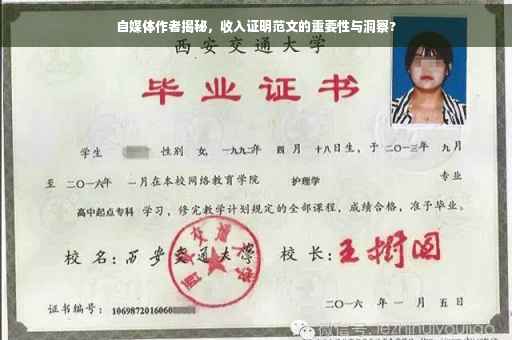 自媒体作者揭秘，收入证明范文的重要性与洞察？
西安交通大学
毕业证书
学生 性别 女, 一九九二年 四月 十八日生, 于 二〇一三年 九月
至 二〇一六年 一月在本校网络教育学院 护理学 专业
高中起点专科 学习, 修完教学计划规定的全部课程, 成绩合格, 准予毕业。
校 名: 西安交通大学 校 长: 王树国
西安交通大学
证书编号: 1069872016060
二〇一六 年 一 月 五 日
微信号: jezhihuiyoujiao